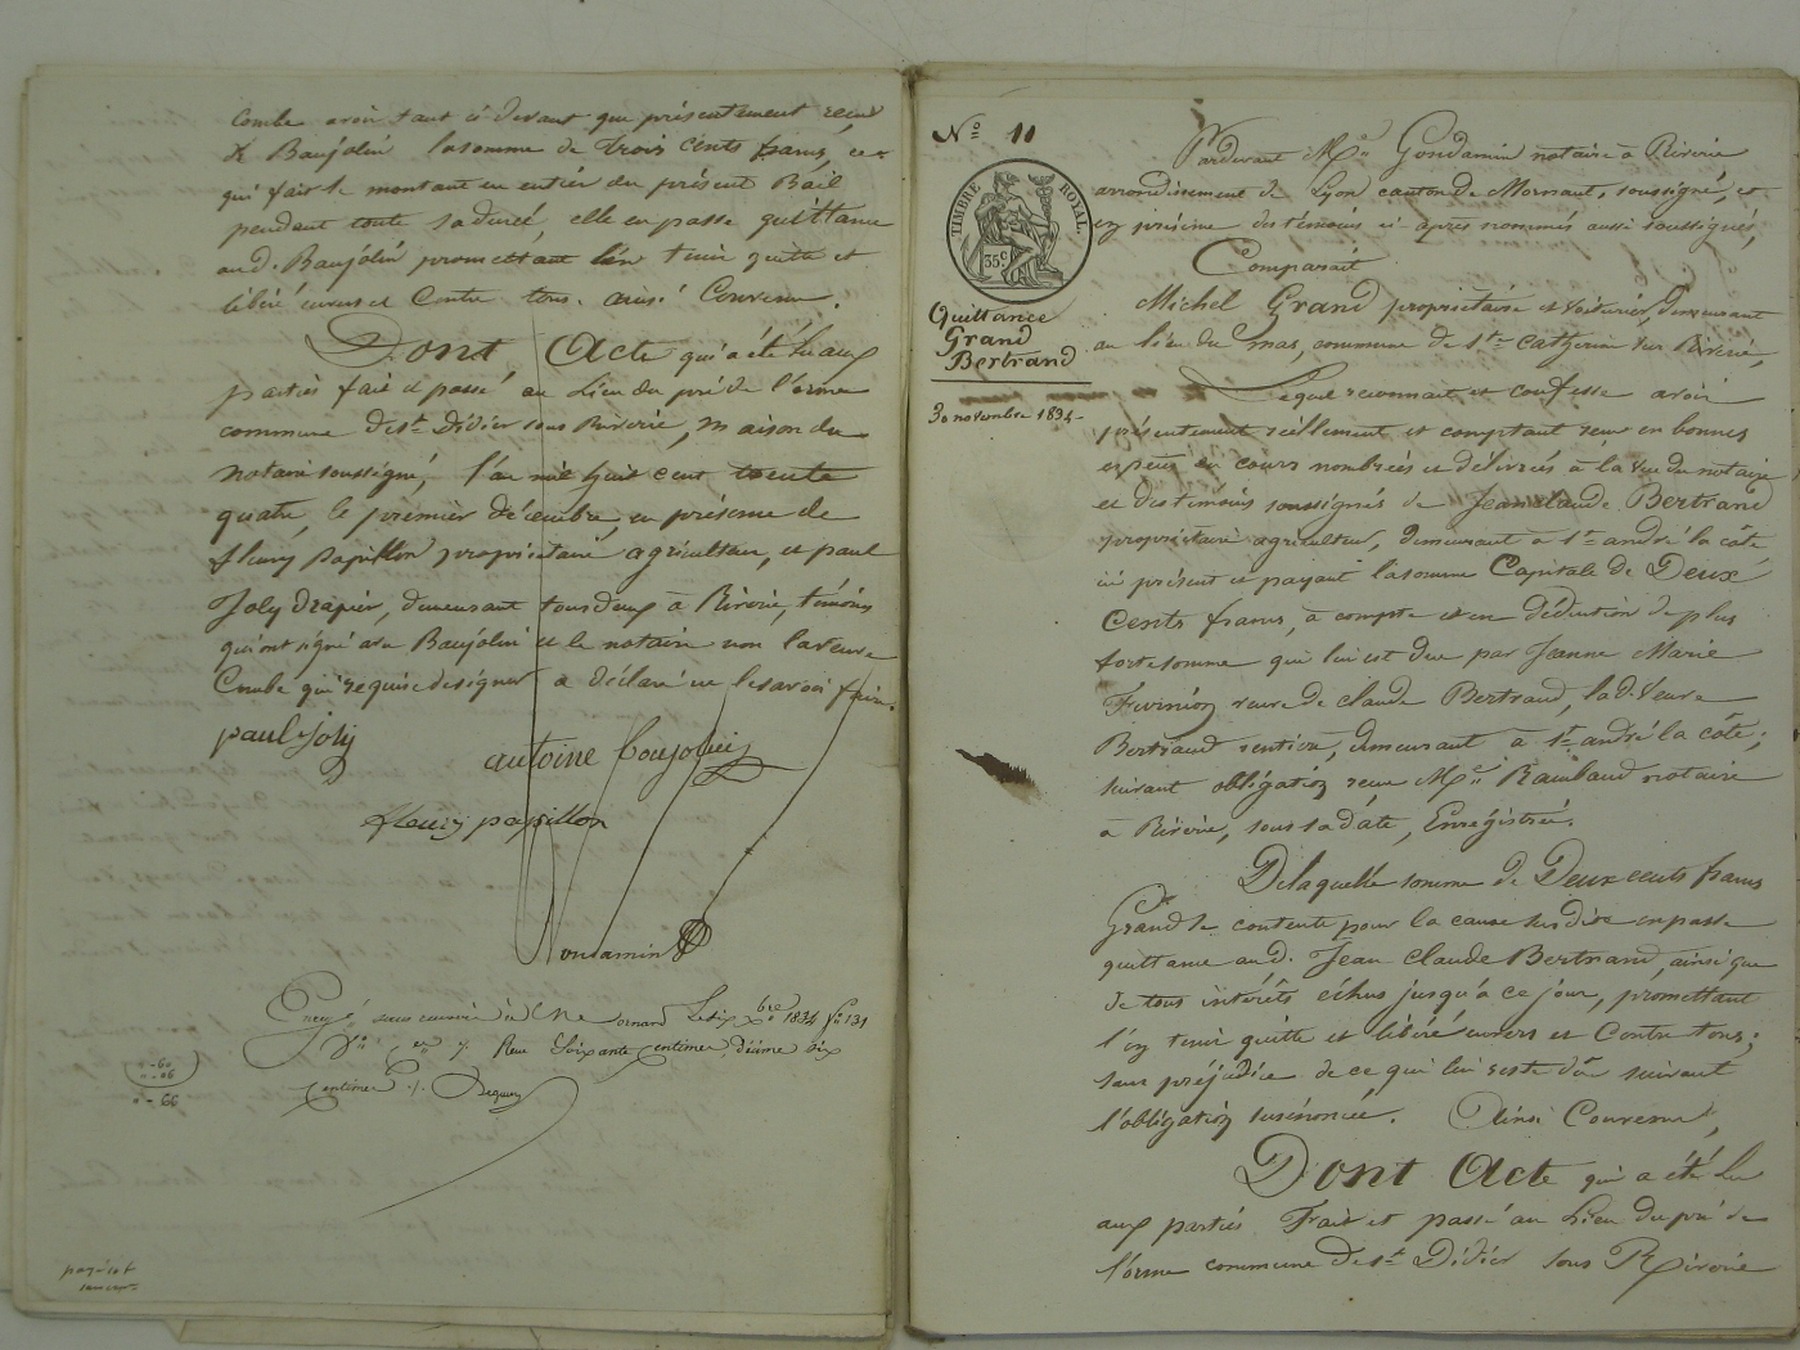 Combe avoir tant ci devant que présentement reçu
de Baujolin la somme de trois cents francs, ce
qui fait le montant en entier du présent Bail
pendant toute sa durée, elle en passe quittance
aud. Baujolin promettant l'en tenir quitte et
libéré envers et Contre tous. ainsi Convenu.
Dont Acte qui a été lu aux
parties fait et passé au Lieu du pré de l'orme
commune de st Didier sous Riverie, maison du
notaire soussigné, l'an mil huit cent trente
quatre, le premier décembre, en présence de
fleury Papillon propriétaire agriculteur, et paul
Joly drapier, demeurant tous deux à Riverie, témoins
qui ont signé avec Baujolin et le notaire non la veuve
Combe qui requise de signer a déclaré ne le savoir faire.
paul Joly
antoine boujolin
fleury papillon
Gondamin
Enregé sans renvoi à Mornand Le six Xbre 1834 fo 131
Vo Reçu Soixante Centimes, dixime six
Centimes
" - 60
" - 06
" - 66
No 11
TIMBRE ROYAL.
35c
Quittance
Grand
Bertrand
30 novembre 1834
Pardevant Me Gondamin notaire à Riverie
arrondissement de Lyon canton de Mornant, soussigné, et
en présence des témoins ci-après nommés aussi soussignés,
Comparait
Michel Grand propriétaire et voiturier, demeurant
au lieu du mas, commune de Ste Catherine sur Riverie,
Lequel reconnait et confesse avoir
présentement réellement et comptant reçu en bonnes
espèces en cours nombrées et délivrées à la vue du notaire
et des témoins soussignés de Jean claude Bertrand
propriétaire agriculteur, demeurant à st andré la côte
ici présent et payant la somme Capitale de Deux
Cents francs, à compte et en déduction de plus
forte somme qui lui est due par Jeanne Marie
veuve de claude Bertrand, la d. veuve
Bertrand rentière, demeurant à st andré la côte;
suivant obligation reçue Me Raimbaud notaire
à Riverie, sous sa date, Enregistrée.
De laquelle somme de Deux cents francs
Grand se contente pour la cause sus dite en passe
quittance aud. Jean Claude Bertrand, ainsi que
de tous intérêts échus jusqu'à ce jour, promettant
l'en tenir quitte et libéré envers et Contre tous;
sans préjudice de ce qui lui reste dû suivant
l'obligation susénoncée. Ainsi Convenu,
Dont Acte qui a été lu
aux parties Fait et passé au Lieu du pré de
l'orme commune de st Didier sous Riverie